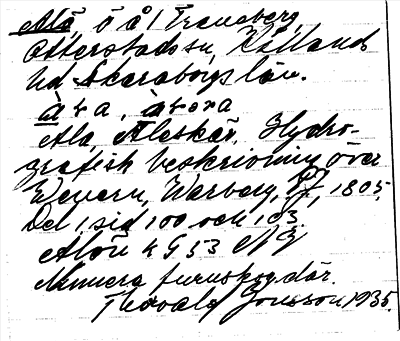 Alö, ö å l Traneberg,
Otterstads sn, Kållands
hd Skaraborgs län.
Ala, Aleskär. Hydro-
grafisk beskrivning över
Wenern, Warberg, 1805,
Del 1, sid 100 och 103.
Alön 4 G 53 NJ
Numera furuskog där.
Thorvald Jonsson 1935.